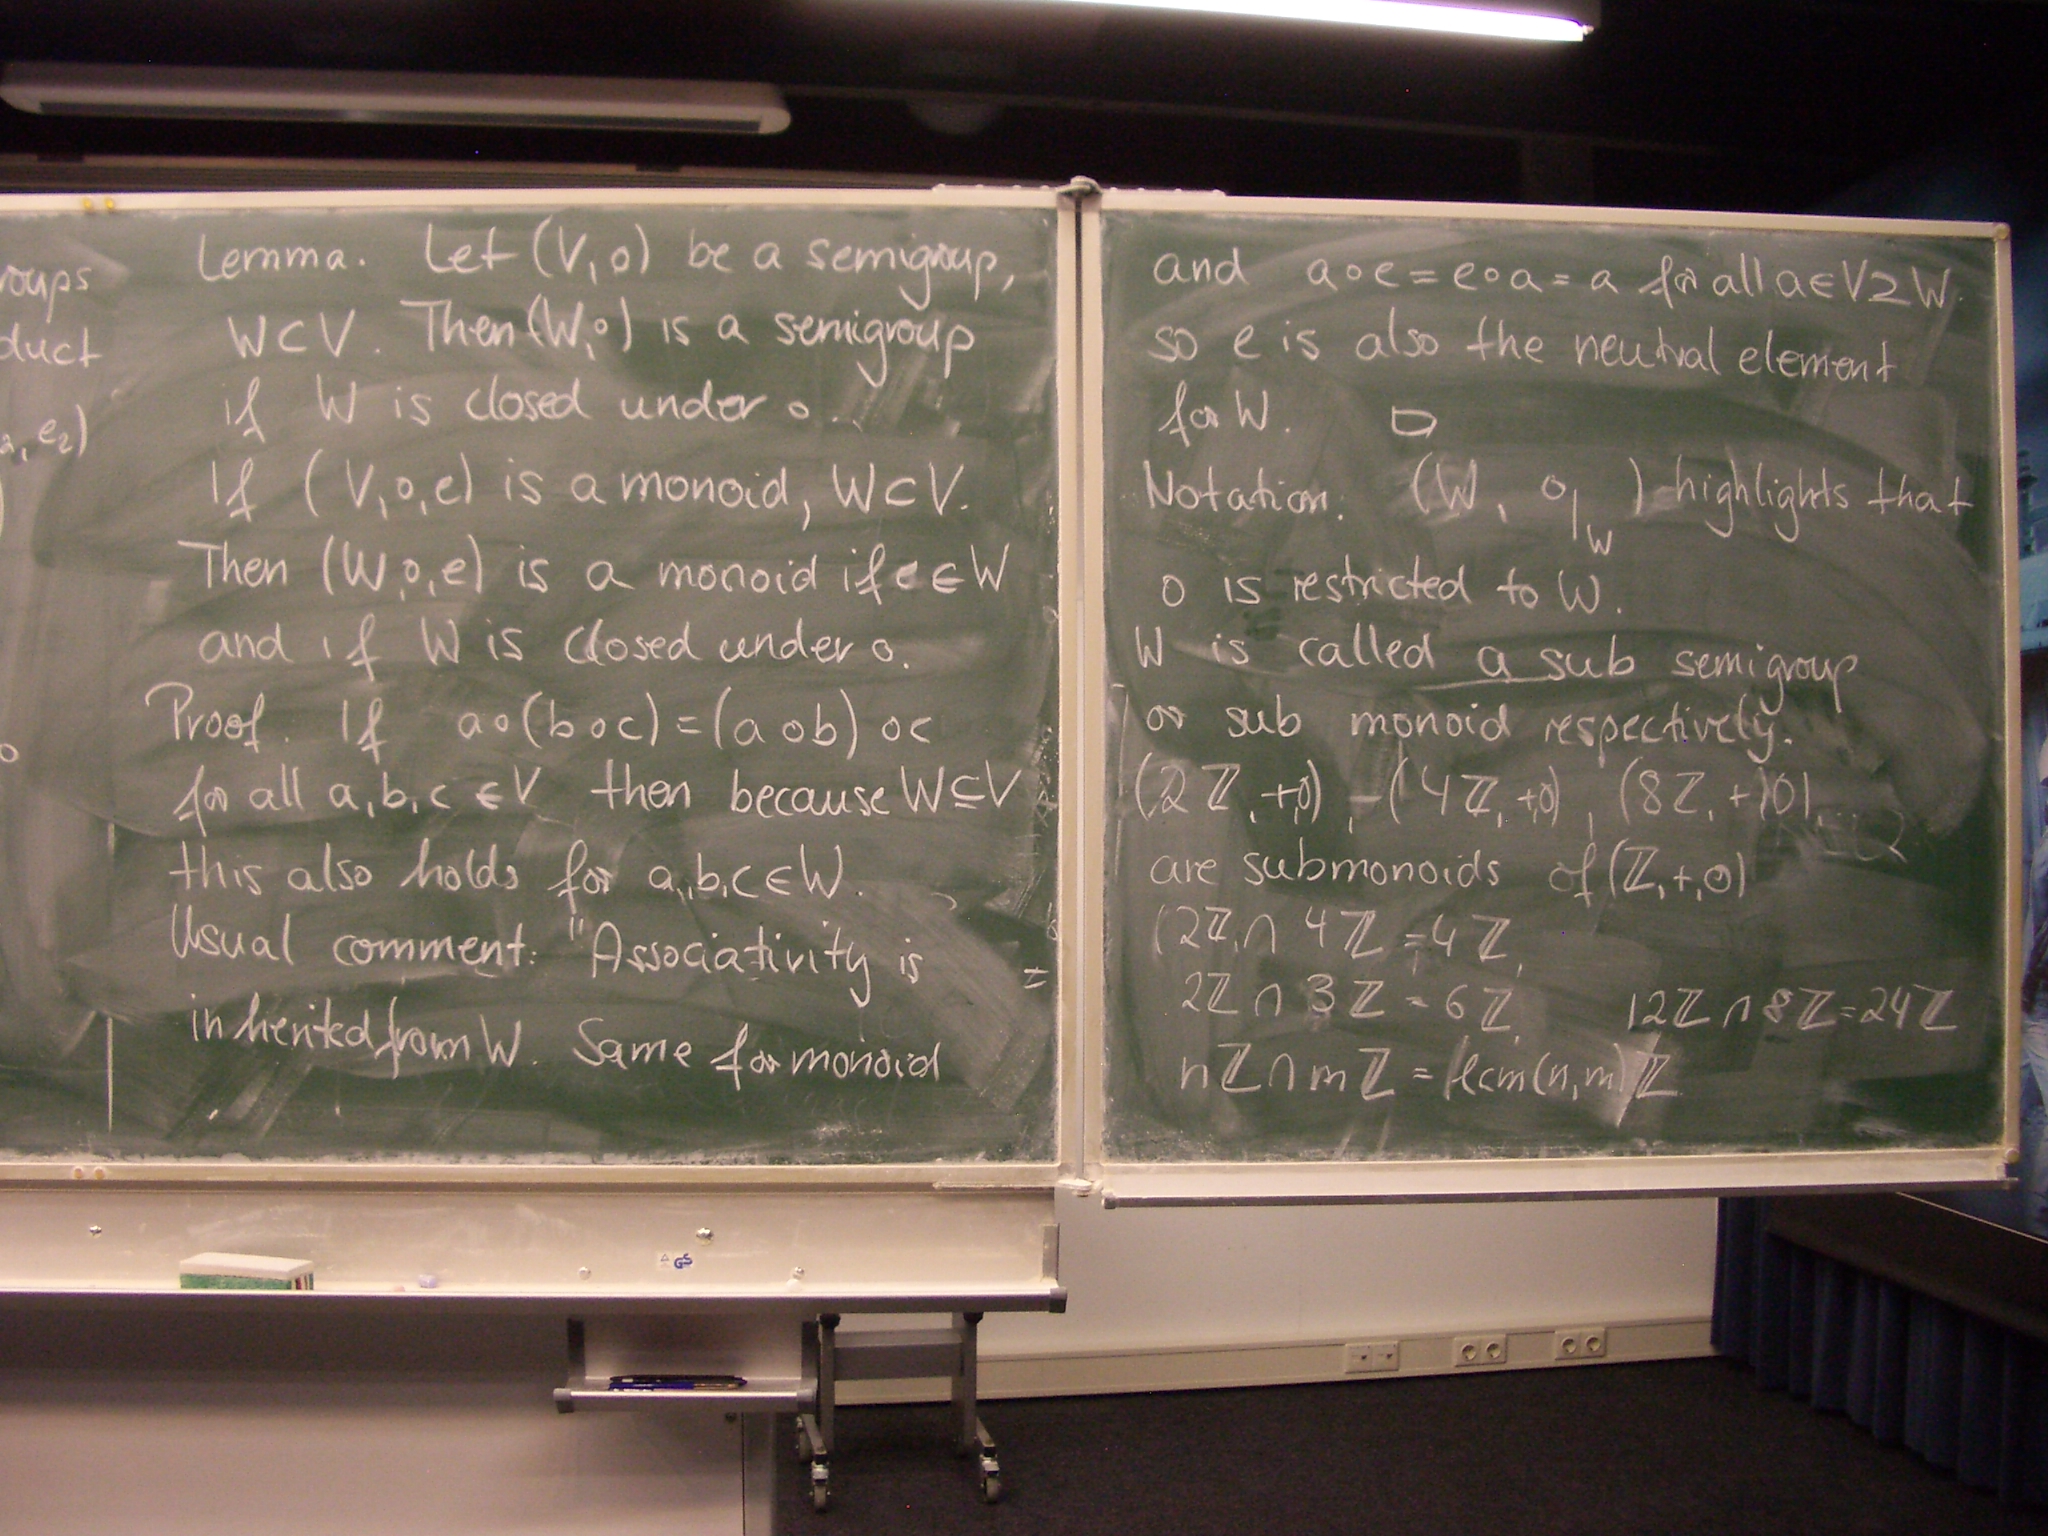 roups
duct
, e₂)
)
o
Lemma. Let (V, o) be a semigroup,
W ⊂ V. Then (W, o) is a semigroup
if W is closed under o.
If (V, o, e) is a monoid, W ⊂ V.
Then (W, o, e) is a monoid if e ∈ W
and if W is closed under o.
Proof. If a o (b o c) = (a o b) o c
for all a, b, c ∈ V then because W ⊆ V
this also holds for a, b, c ∈ W.
Usual comment: "Associativity is
inherited from W. Same for monoid
and a o e = e o a = a for all a ∈ V ⊇ W.
so e is also the neutral element
for W. □
Notation: (W, o|_W) highlights that
o is restricted to W.
W is called a sub semigroup
or sub monoid respectively.
(2ℤ, +, 0), (4ℤ, +, 0), (8ℤ, +, 0),
are submonoids of (ℤ, +, 0)
(2ℤ ∩ 4ℤ = 4ℤ,
2ℤ ∩ 3ℤ = 6ℤ, 12ℤ ∩ 8ℤ = 24ℤ
nℤ ∩ mℤ = lcm(n, m)ℤ
GS